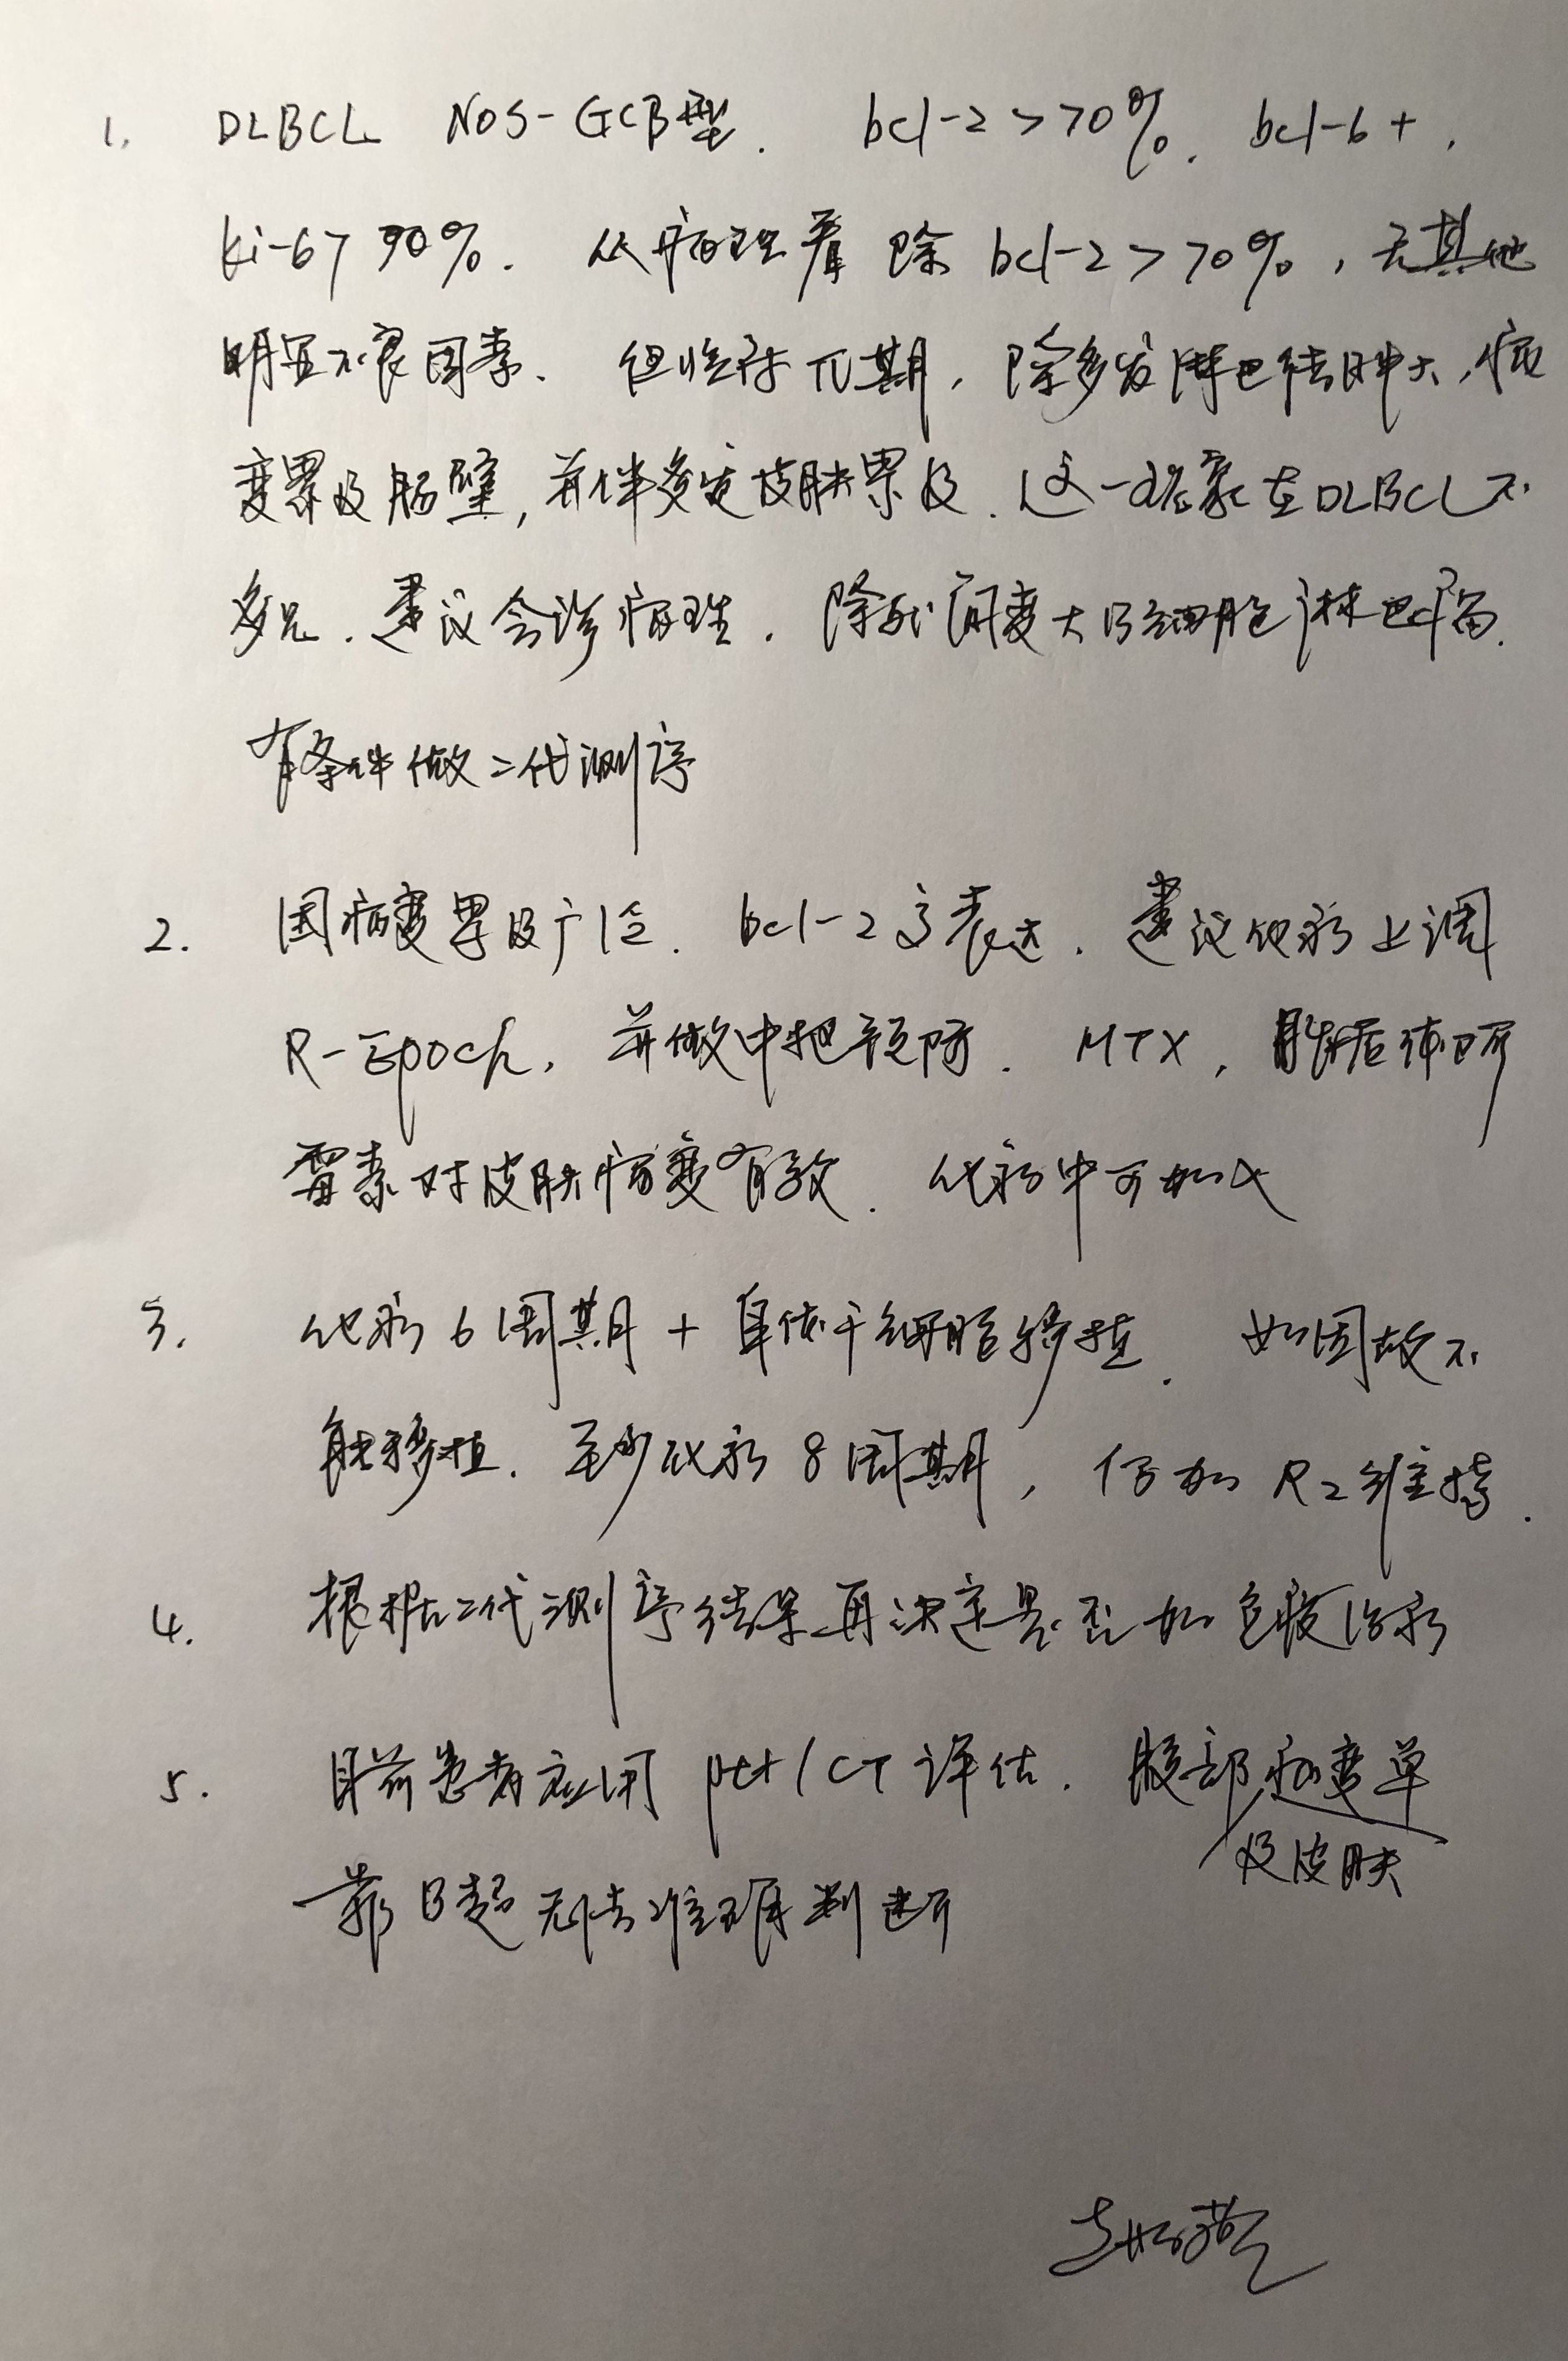 1. DLBCL NOS-GCB型. bcl-2>70%. bcl-6+,
ki-67 90%. 从病理看 除 bcl-2>70%, 无其他
明显不良因素. 但临床IV期, 除多发淋巴结肿大, 病
变累及肠壁, 并伴多发皮肤累及. 这一现象在DLBCL不
多见. 建议会诊病理. 除外间变大B细胞淋巴瘤.
有条件做二代测序
2. 因病变累及广泛. bcl-2高表达. 建议化疗上调
R-Epoch, 并做中枢预防. MTX, 脂质体阿
霉素对皮肤病变有效. 化疗中可加入
3. 化疗6周期+自体干细胞移植. 如因故不
能移植. 至少化疗8周期, 停加R2维持.
4. 根据二代测序结果再决定是否加免疫治疗
5. 目前患者应用pet/CT评估. 腹部病变单
及皮肤
靠B超无法准确判断